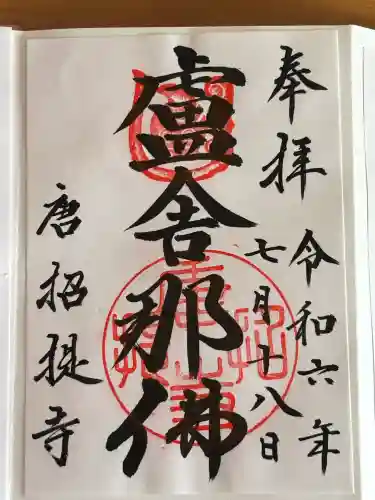 奉拝
令和六年
七月十八日
盧舎那佛
唐招提寺